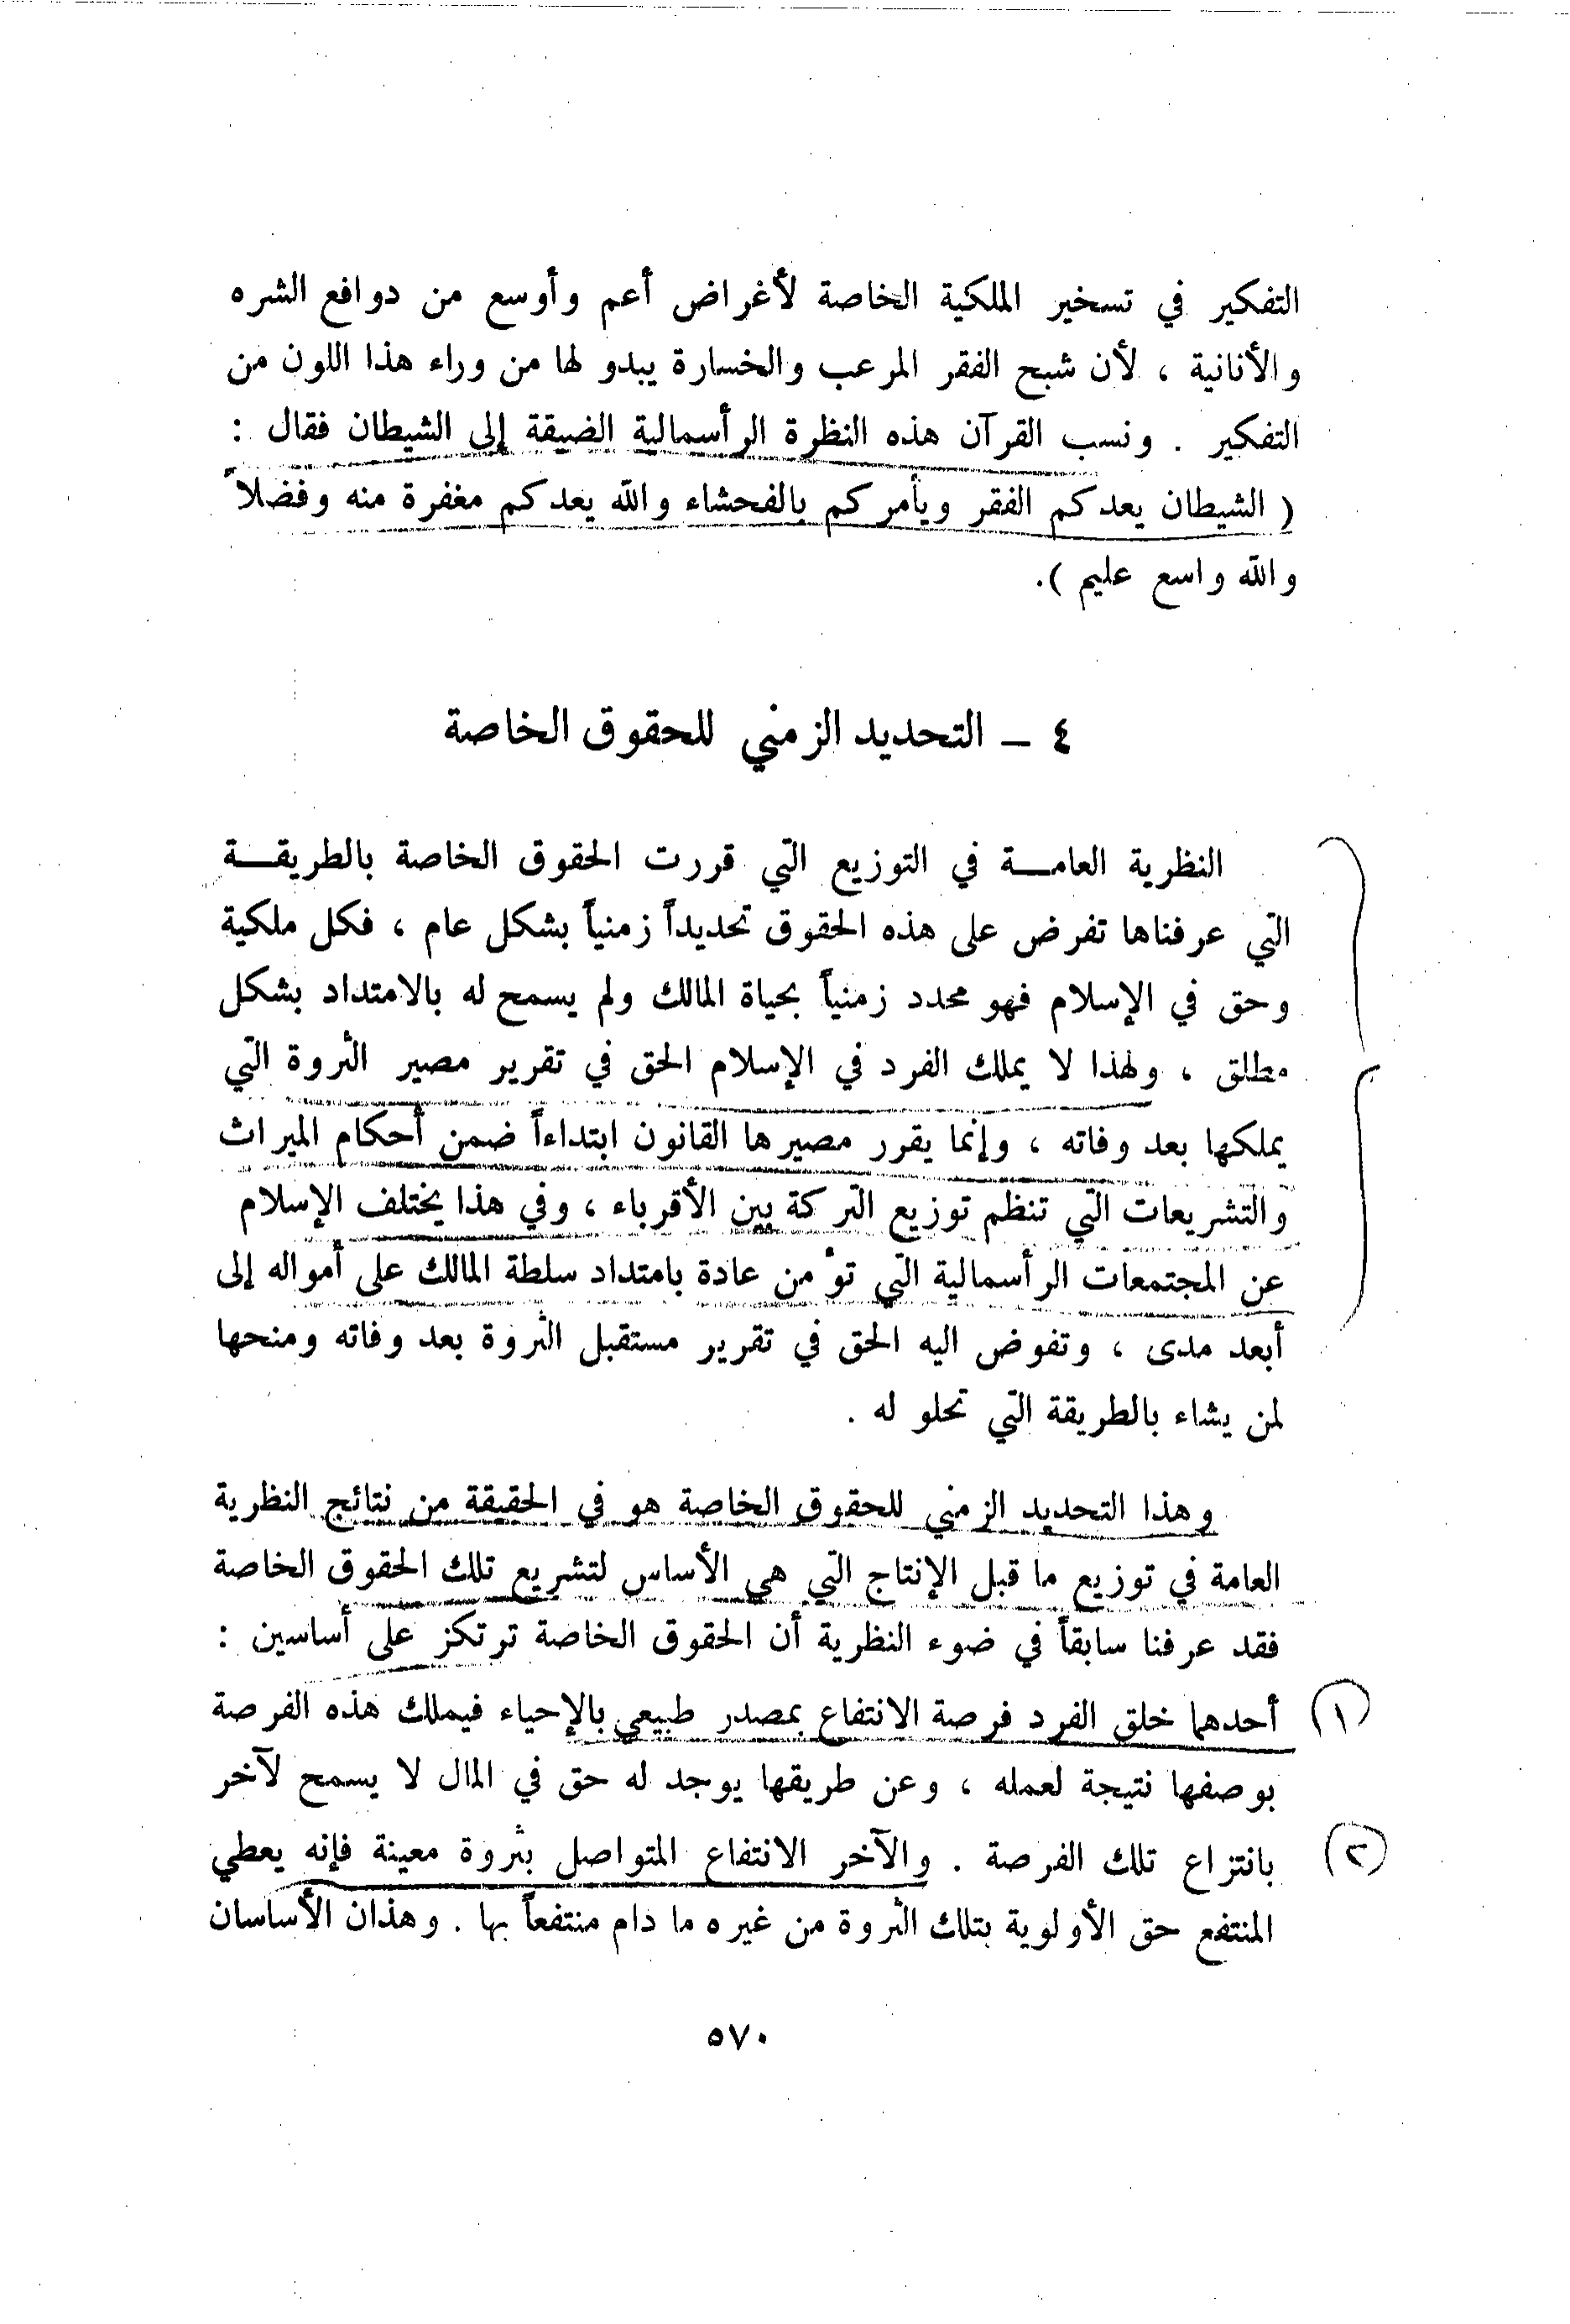 التفكير في تسخير الملكية الخاصة لأغراض أعم وأوسع من دوافع الشره
والأنانية ، لأن شبح الفقر المرعب والخسارة يبدو لها من وراء هذا اللون من
التفكير . ونسب القرآن هذه النظرة الرأسمالية الضيقة إلى الشيطان فقال :
( الشيطان يعدكم الفقر ويأمركم بالفحشاء والله يعدكم مغفرة منه وفضلاً
والله واسع عليم ).
٤ – التحديد الزمني للحقوق الخاصة
النظرية العامـــة في التوزيع التي قررت الحقوق الخاصة بالطريقـــة
التي عرفناها تفرض على هذه الحقوق تحديداً زمنياً بشكل عام ، فكل ملكية
وحق في الإسلام فهو محدد زمنياً بحياة المالك ولم يسمح له بالامتداد بشكل
مطلق ، ولهذا لا يملك الفرد في الإسلام الحق في تقرير مصير الثروة التي
يملكها بعد وفاته ، وإنما يقرر مصيرها القانون ابتداءاً ضمن أحكام الميراث
والتشريعات التي تنظم توزيع التركة بين الأقرباء ، وفي هذا يختلف الإسلام
عن المجتمعات الرأسمالية التي تؤمن عادة بامتداد سلطة المالك على أمواله إلى
أبعد مدى ، وتفوض اليه الحق في تقرير مستقبل الثروة بعد وفاته ومنحها
لمن يشاء بالطريقة التي تحلو له .
وهذا التحديد الزمني للحقوق الخاصة هو في الحقيقة من نتائج النظرية
العامة في توزيع ما قبل الإنتاج التي هي الأساس لتشريع تلك الحقوق الخاصة
فقد عرفنا سابقاً في ضوء النظرية أن الحقوق الخاصة ترتكز على أساسين :
(١) أحدهما خلق الفرد فرصة الانتفاع بمصدر طبيعي بالإحياء فيملك هذه الفرصة
بوصفها نتيجة لعمله ، وعن طريقها يوجد له حق في المال لا يسمح لآخر
(٢) بانتزاع تلك الفرصة . والآخر الانتفاع المتواصل بثروة معينة فإنه يعطي
المنتفع حق الأولوية بتلك الثروة من غيره ما دام منتفعاً بها . وهذان الأساسان
٥٧٠